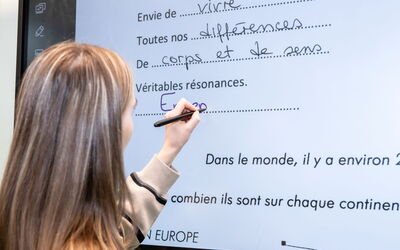 Envie de vivre
Toutes nos différences
De corps et de sens
Véritables résonances.
Dans le monde, il y a environ 2
combien ils sont sur chaque continen
N EUROPE